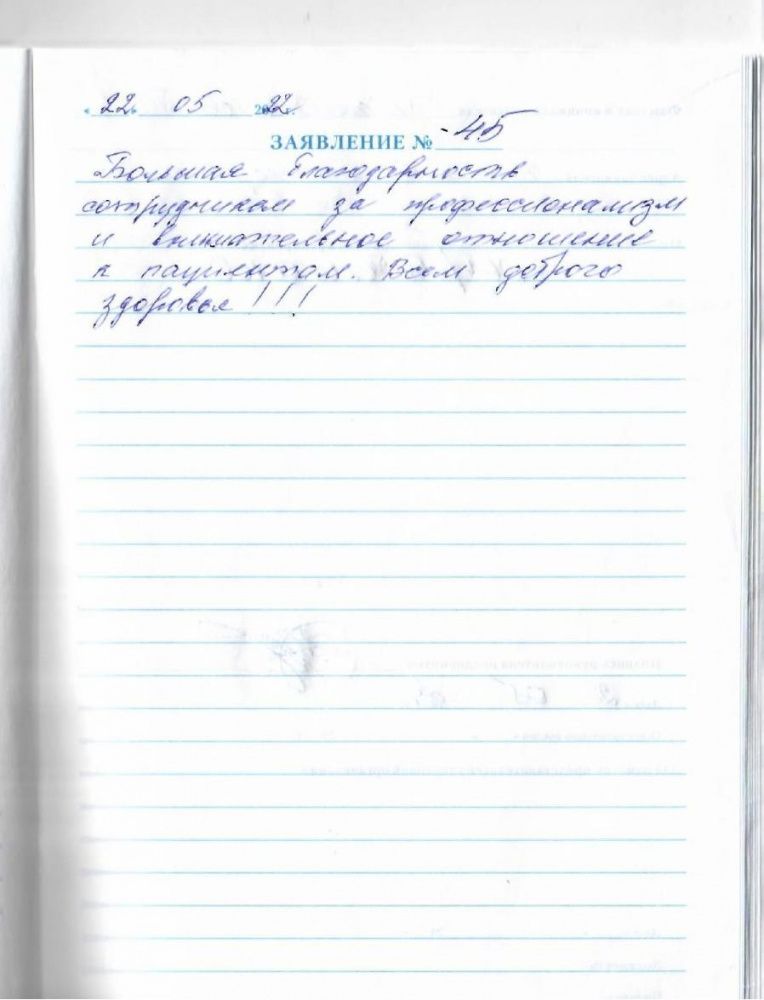 «22» 05 2022г.
ЗАЯВЛЕНИЕ № -45
Большая благодарность
сотрудникам за профессионализм
и внимательное отношение
к пациентам. Всем доброго
здоровья!!!